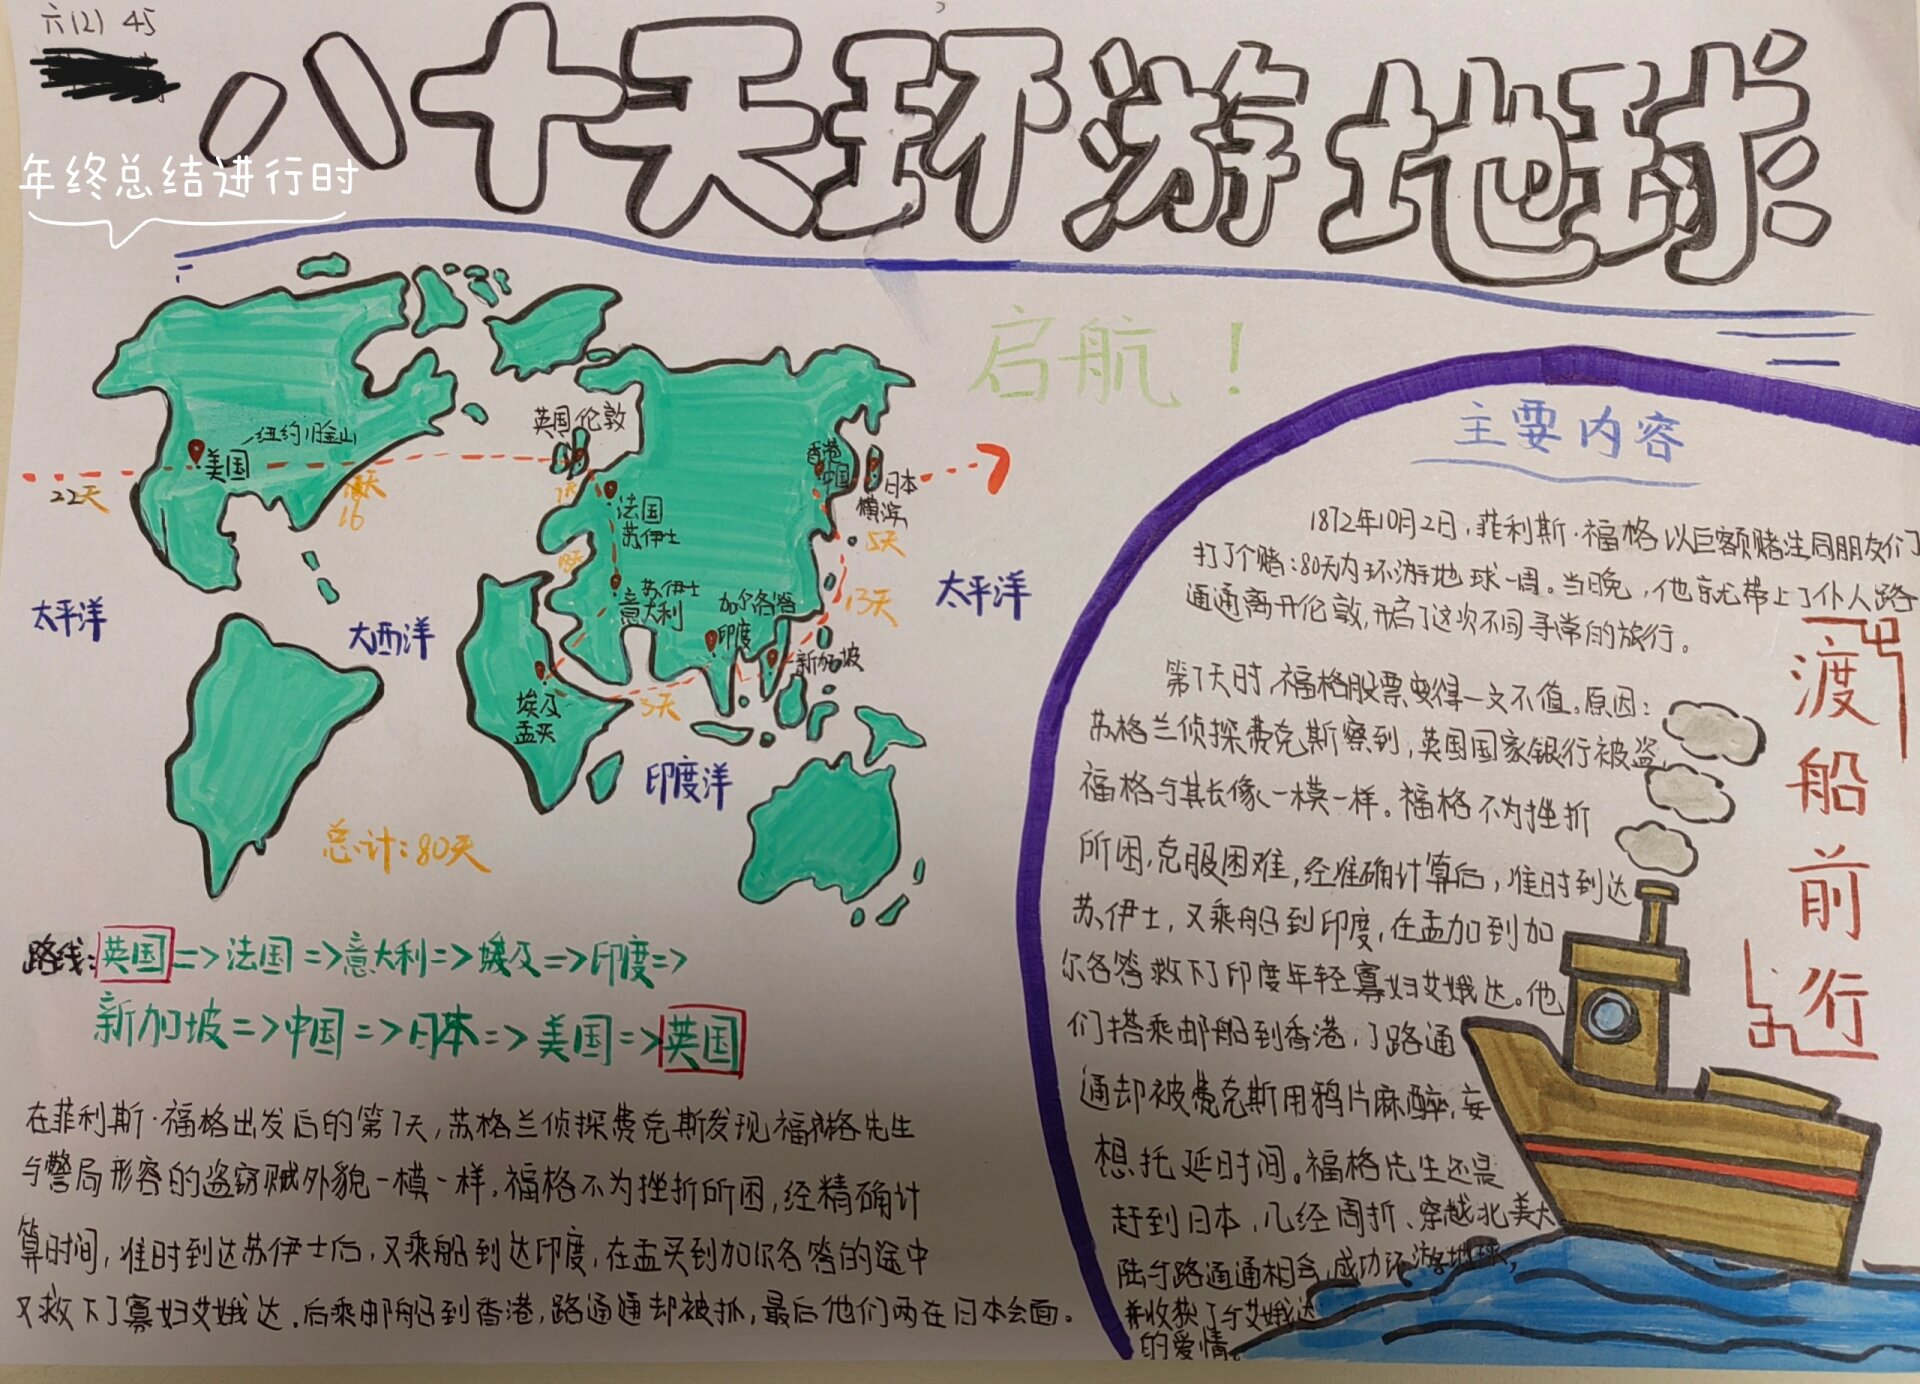 六(2) 45
八十天环游地球
年终总结进行时
启航！
英国伦敦
纽约旧金山
美国
22天
16
7天
法国
苏伊士
香港
中国
日本
横滨
5天
13天
太平洋
苏伊士
意大利
加尔各答
印度
新加坡
太平洋
大西洋
埃及
孟买
3天
印度洋
总计：80天
路线：英国=>法国=>意大利=>埃及=>印度=>
新加坡=>中国=>日本=>美国=>英国
在菲利斯·福格出发后的第7天，苏格兰侦探费克斯发现福格先生
与警局形容的盗窃贼外貌一模一样，福格不为挫折所困，经精确计
算时间，准时到达苏伊士后，又乘船到达印度，在孟买到加尔各答的途中
又救下了寡妇艾娥达。后乘邮船到香港，路通通却被抓，最后他们两在日本会面。
主要内容
1872年10月2日，菲利斯·福格以巨额赌注同朋友们
打了个赌：80天内环游地球一周。当晚，他就带上了仆人路
通通离开伦敦，开启了这次不同寻常的旅行。
第7天时，福格股票变得一文不值。原因：
苏格兰侦探费克斯察到，英国国家银行被盗，
福格与其长像一模一样。福格不为挫折
所困，克服困难，经准确计算后，准时到达
苏伊士，又乘船到印度，在孟加到加
尔各答救下了印度年轻寡妇艾娥达。他
们搭乘邮船到香港，了路通
通却被费克斯用鸦片麻醉，妄
想托延时间。福格先生还是
赶到日本，几经周折、穿越北美大
陆与路通通相会，成功环游地球，
并收获了与艾娥达
的爱情。
渡船前行